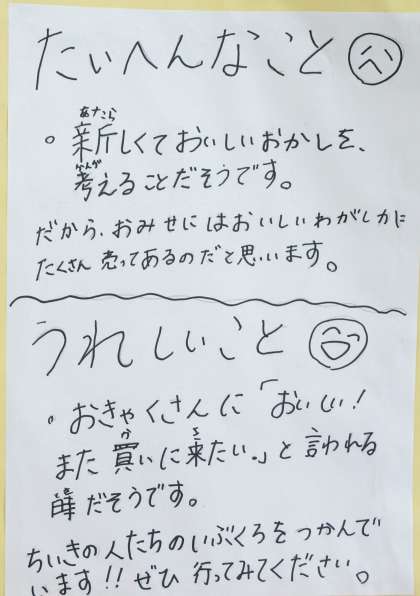 たいへんなこと
あたら
・新しくておいしいおかしを、
かんが
考えることだそうです。
だから、おみせにはおいしいわがしがに
たくさん売ってあるのだと思います。
うれしいこと
・おきゃくさんに「おいしい!
か き
また買いに来たい。」と言われる
だそうです。
ちいきの人たちのいぶくろをつかんで
います!!ぜひ行ってみてください。